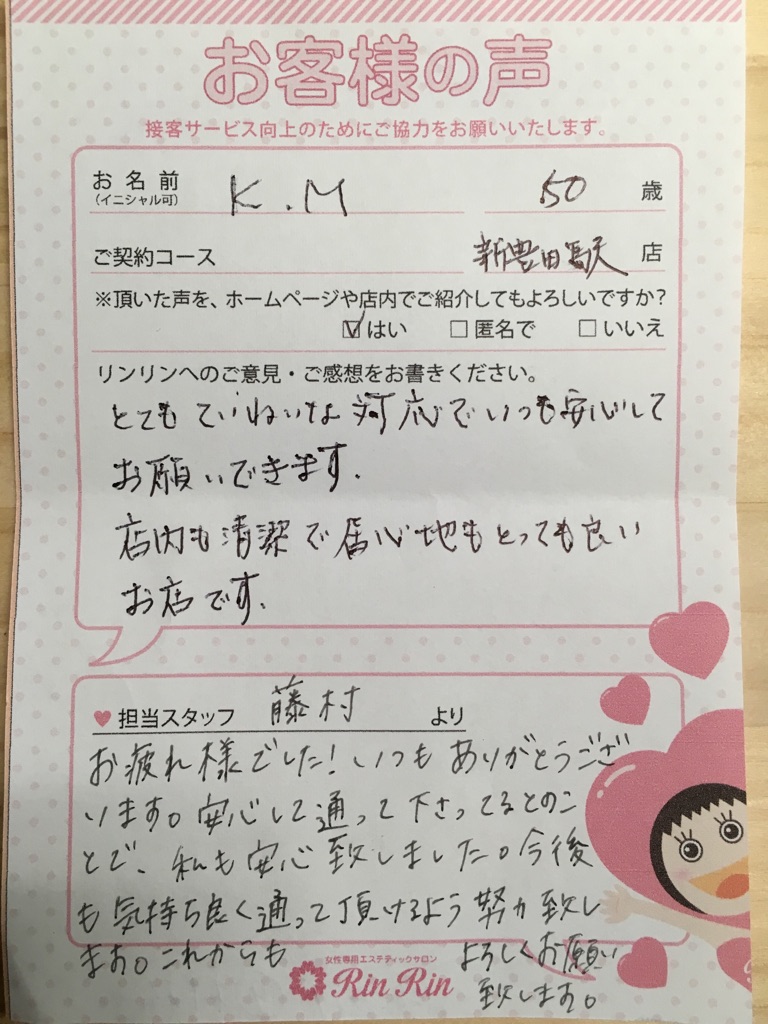 お客様の声
接客サービス向上のためにご協力をお願いいたします。
お名前 K.M 50 歳
(イニシャル可)
ご契約コース 新豊田駅 店
※頂いた声を、ホームページや店内でご紹介してもよろしいですか?
☑はい □匿名で □いいえ
リンリンへのご意見・ご感想をお書きください。
とても ていねいな 対応で いつも安心して
お願いできます.
店内も清潔で居心地もとっても良い
お店です.
♥担当スタッフ 藤村 より
お疲れ様でした!いつも ありがとうござ
います。安心して通って下さってるとのこ
とで、私も安心致しました。今後
も気持ち良く通って頂けるよう努力致し
ます。これからも よろしくお願い
致します。
女性専用エステティックサロン
Rin Rin